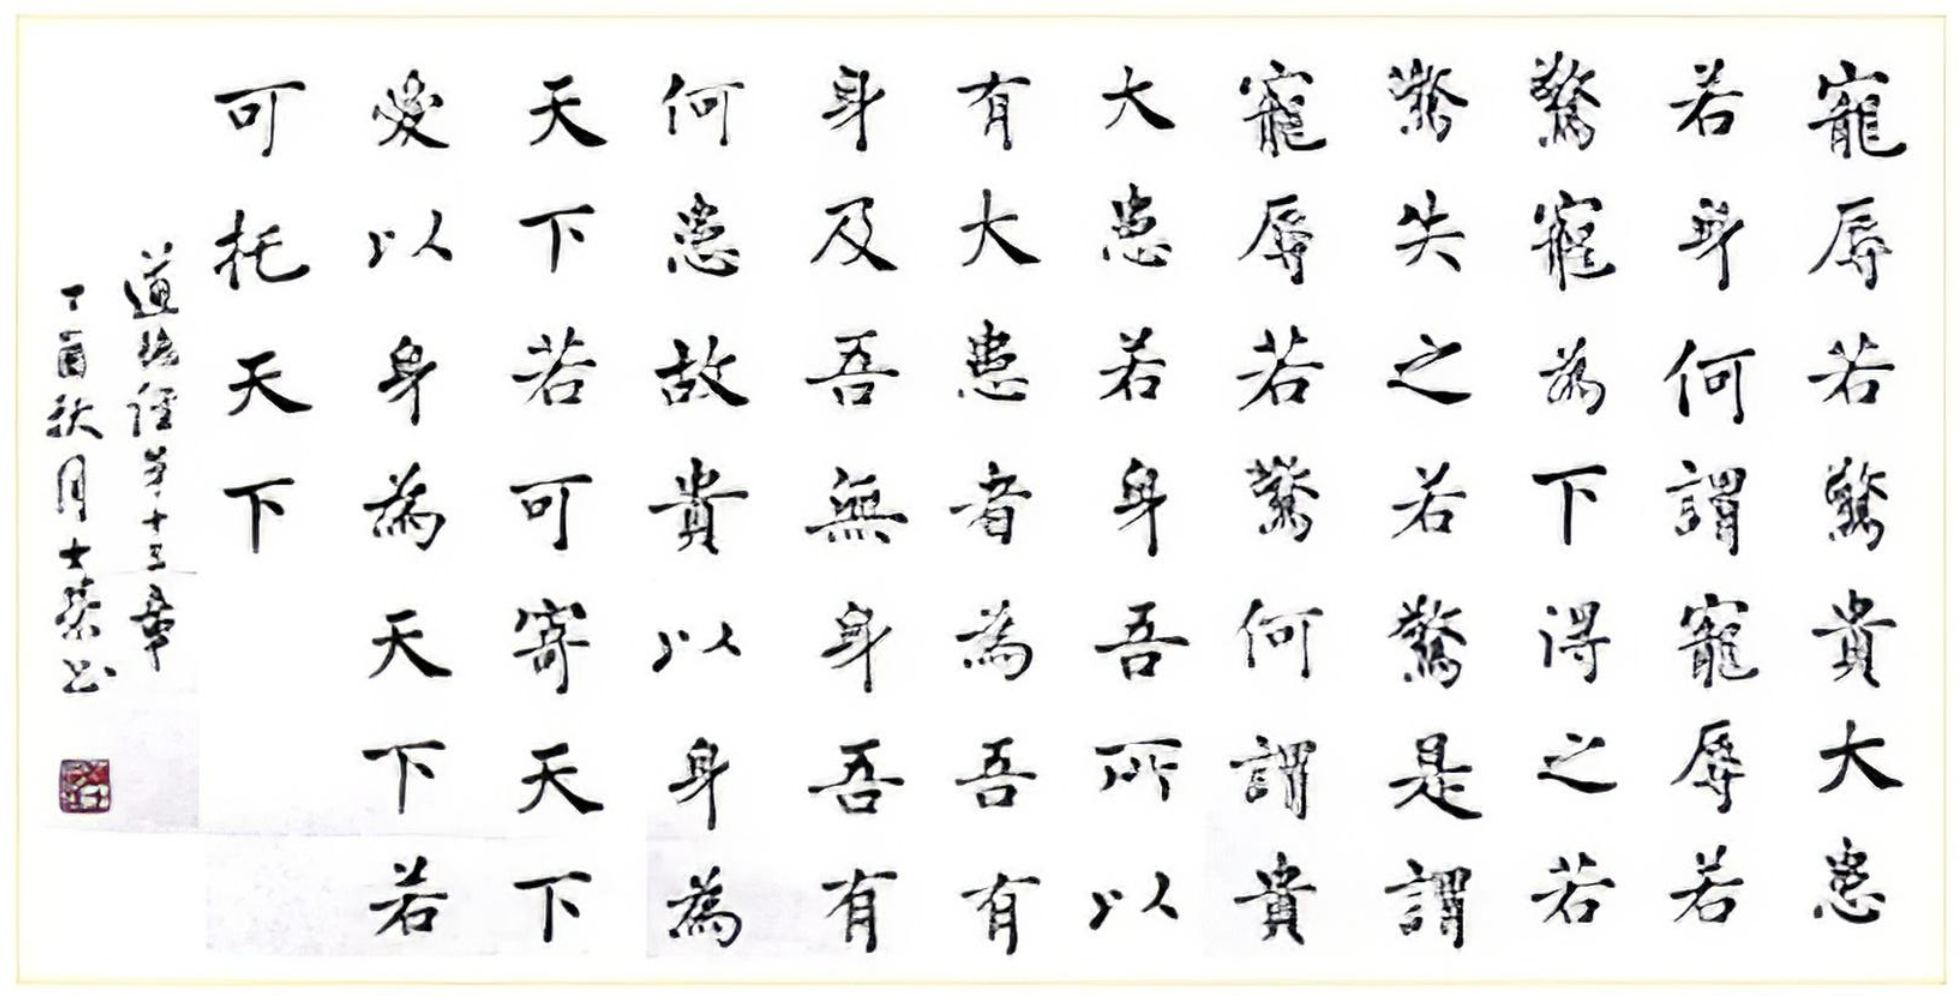 寵辱若驚貴大患
若身何謂寵辱若
驚寵為下得之若
驚失之若驚是謂
寵辱若驚何謂貴
大患若身吾所以
有大患者為吾有
身及吾無身吾有
何患故貴以身為
天下若可寄天下
愛以身為天下若
可托天下
道德經第十三章
丁酉秋月士榮书